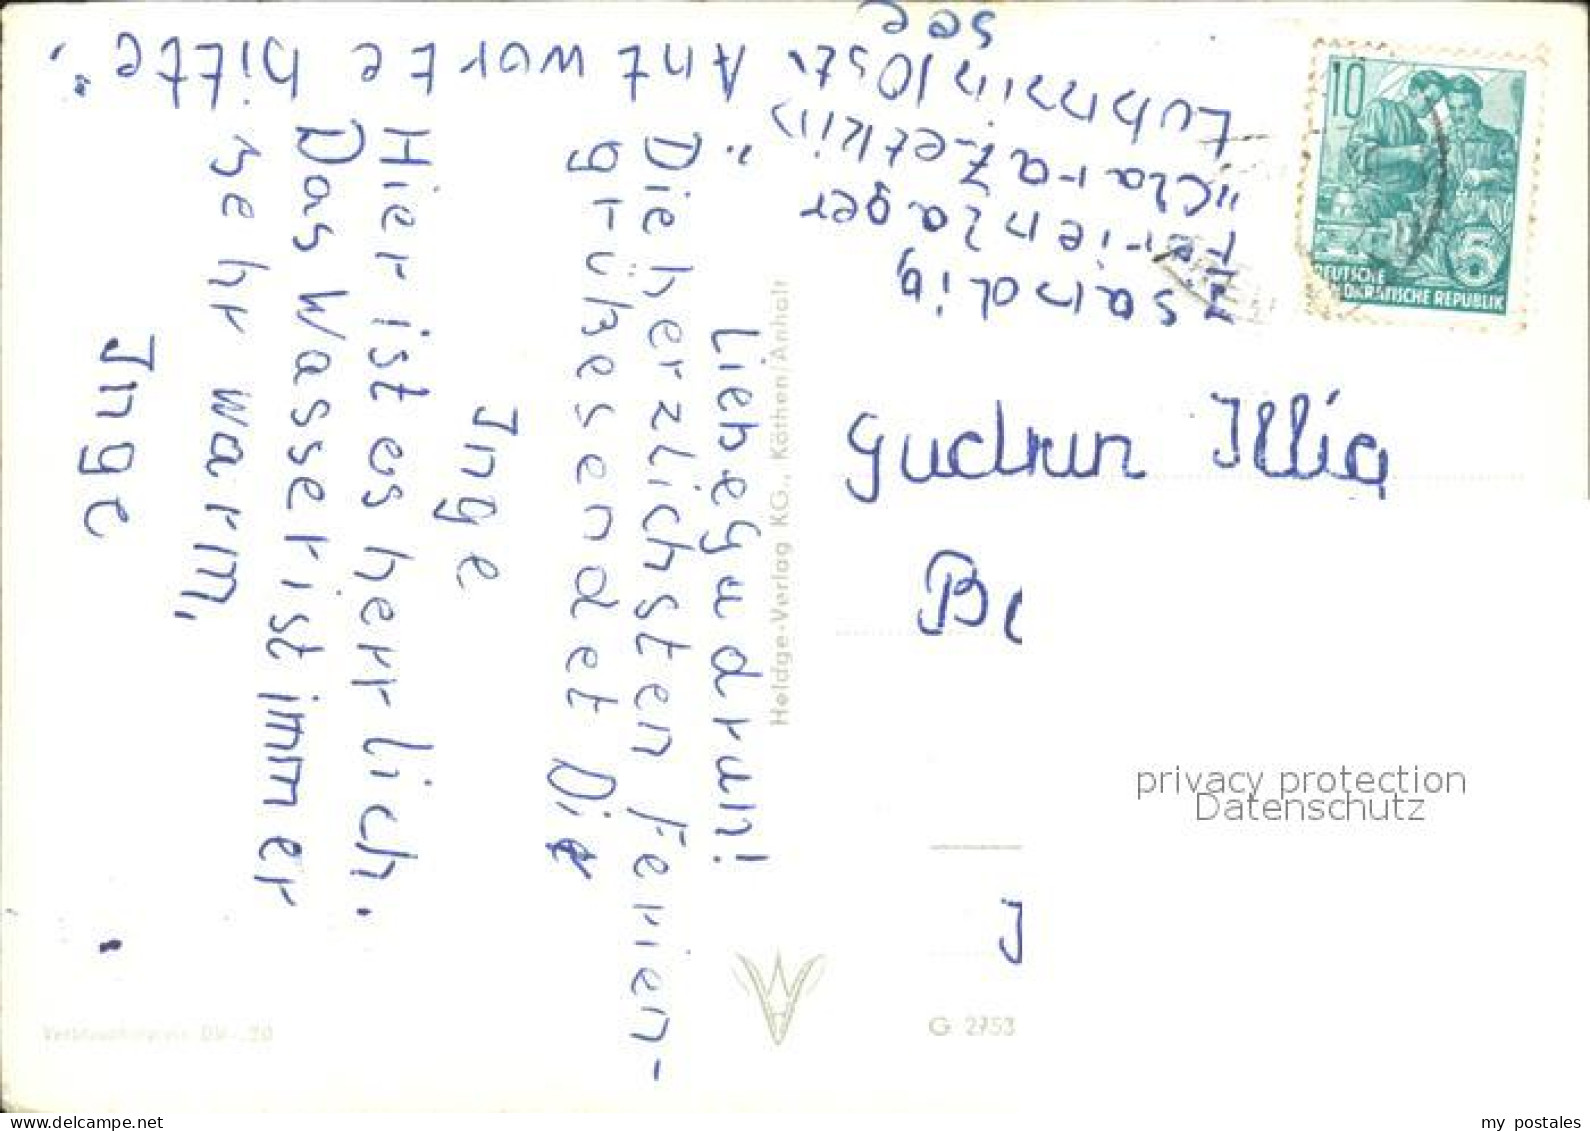 Liebe Gudrun!
Die herzlichsten Ferien-
grüße sendet Dir
Inge
Hier ist es herrlich.
Das Wasser ist immer
sehr warm,
Inge
"Antworte bitte".
Ferienlager
"Clara Zetkin"
Lubmin/Ost
see
Gudrun Illig
Be
J
10
5
DEUTSCHE
DEMOKRATISCHE REPUBLIK
Heldge-Verlag KG., Köthen/Anhalt
G 2753
privacy protection
Datenschutz
www.delcampe.net
my postales